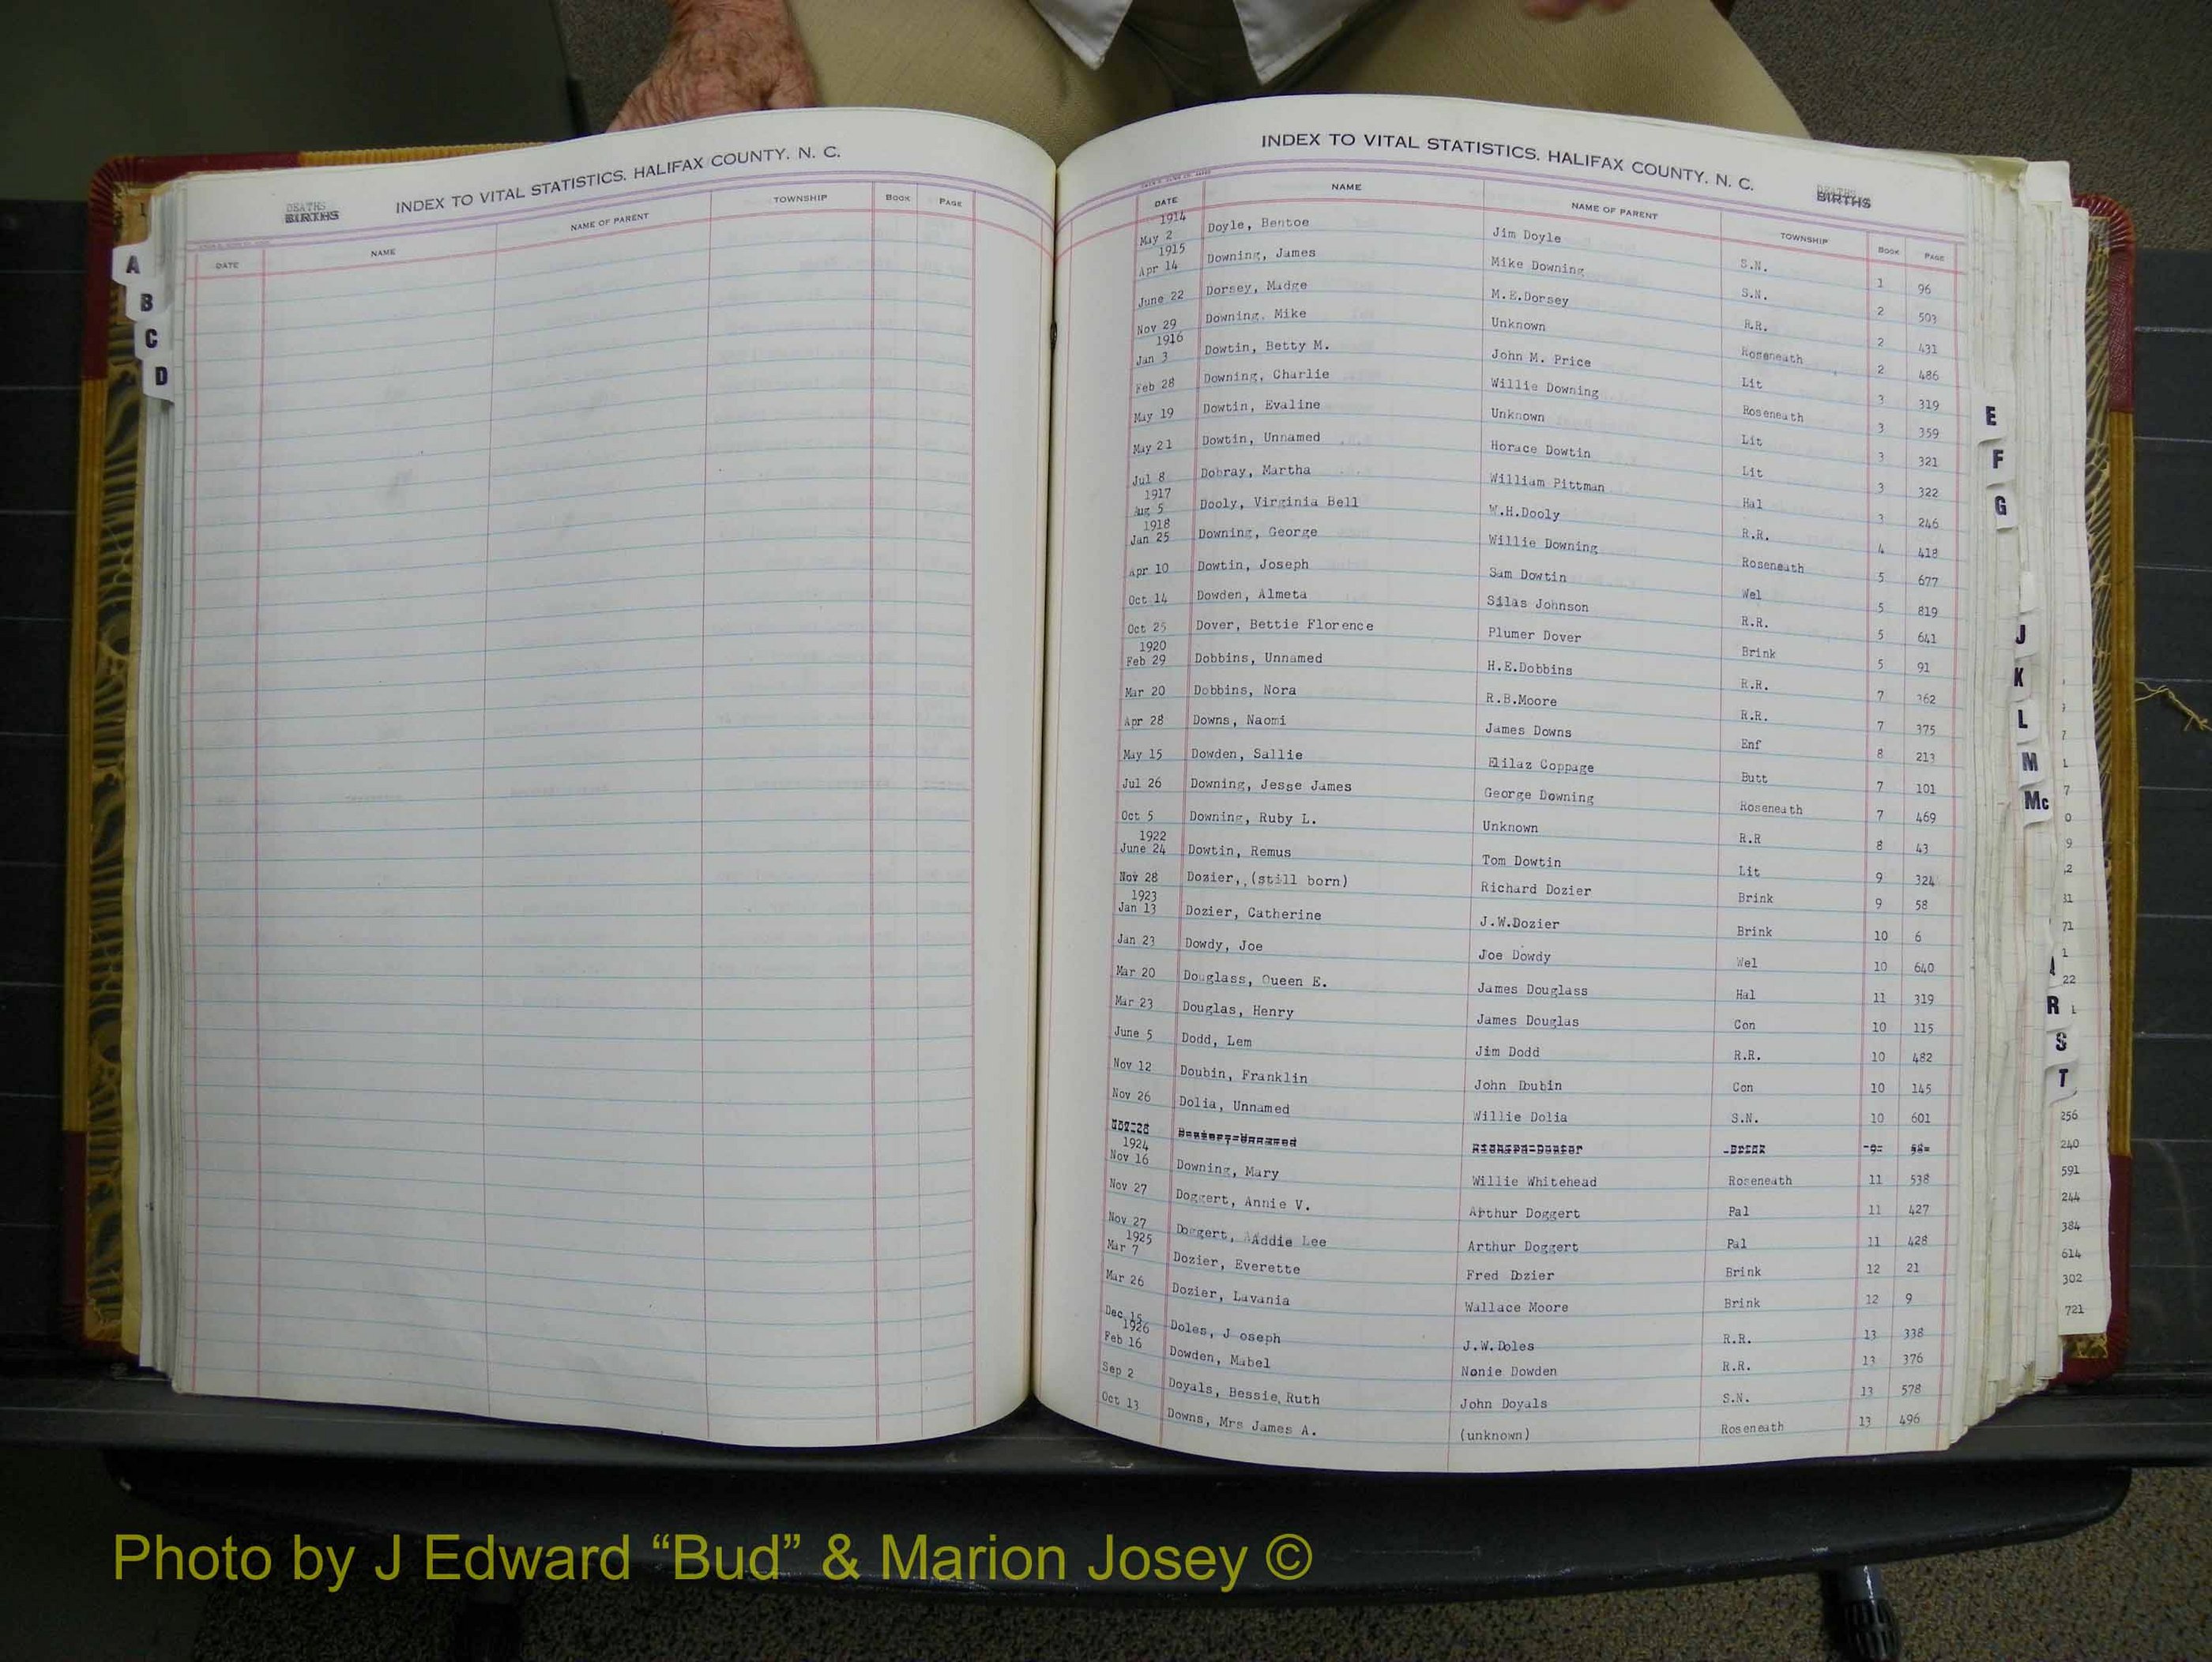 DEATHS
BIRTHS
INDEX TO VITAL STATISTICS. HALIFAX COUNTY. N. C.
DATE NAME NAME OF PARENT TOWNSHIP BOOK PAGE
A
B
C
D
INDEX TO VITAL STATISTICS. HALIFAX COUNTY. N. C.
DEATHS
BIRTHS
DATE NAME NAME OF PARENT TOWNSHIP BOOK PAGE
1914
May 2 Doyle, Bentoe Jim Doyle S.N. 1 96
1915
Apr 14 Downing, James Mike Downing S.N. 2 503
June 22 Dorsey, Madge M.E.Dorsey R.R. 2 431
Nov 29 Downing, Mike Unknown Roseneath 2 486
1916
Jan 3 Dowtin, Betty M. John M. Price Lit 3 319
Feb 28 Downing, Charlie Willie Downing Roseneath 3 359
May 19 Dowtin, Evaline Unknown Lit 3 321
May 21 Dowtin, Unnamed Horace Dowtin Lit 3 322
Jul 8 Dobray, Martha William Pittman Hal 3 246
1917
Aug 5 Dooly, Virginia Bell W.H.Dooly R.R. 4 418
1918
Jan 25 Downing, George Willie Downing Roseneath 5 677
Apr 10 Dowtin, Joseph Sam Dowtin Wel 5 819
Oct 14 Dowden, Almeta Silas Johnson R.R. 5 641
Oct 25 Dover, Bettie Florence Plumer Dover Brink 5 91
1920
Feb 29 Dobbins, Unnamed H.E.Dobbins R.R. 7 362
Mar 20 Dobbins, Nora R.B.Moore R.R. 7 375
Apr 28 Downs, Naomi James Downs Enf 8 213
May 15 Dowden, Sallie Elilaz Coppage Butt 7 101
Jul 26 Downing, Jesse James George Downing Roseneath 7 469
Oct 5 Downing, Ruby L. Unknown R.R 8 43
1922
June 24 Dowtin, Remus Tom Dowtin Lit 9 324
Nov 28 Dozier, (still born) Richard Dozier Brink 9 58
1923
Jan 13 Dozier, Catherine J.W.Dozier Brink 10 6
Jan 23 Dowdy, Joe Joe Dowdy Wel 10 640
Mar 20 Douglass, Queen E. James Douglass Hal 11 319
Mar 23 Douglas, Henry James Douglas Con 10 115
June 5 Dodd, Lem Jim Dodd R.R. 10 482
Nov 12 Doubin, Franklin John Doubin Con 10 145
Nov 26 Dolia, Unnamed Willie Dolia S.N. 10 601
1924
Nov 16 Downing, Mary Willie Whitehead Roseneath 11 538
Nov 27 Doggert, Annie V. Arthur Doggert Pal 11 427
Nov 27 Doggert, Addie Lee Arthur Doggert Pal 11 428
1925
Mar 7 Dozier, Everette Fred Dozier Brink 12 21
Mar 26 Dozier, Lavania Wallace Moore Brink 12 9
Dec 15 Doles, J oseph J.W.Doles R.R. 13 338
1926
Feb 16 Dowden, Mabel Nonie Dowden R.R. 13 376
Sep 2 Doyals, Bessie Ruth John Doyals S.N. 13 578
Oct 13 Downs, Mrs James A. (unknown) Roseneath 13 496
E
F
G
J
K
L
M
Mc
R
S
T
256
240
591
244
384
614
302
721
Photo by J Edward “Bud” & Marion Josey ©